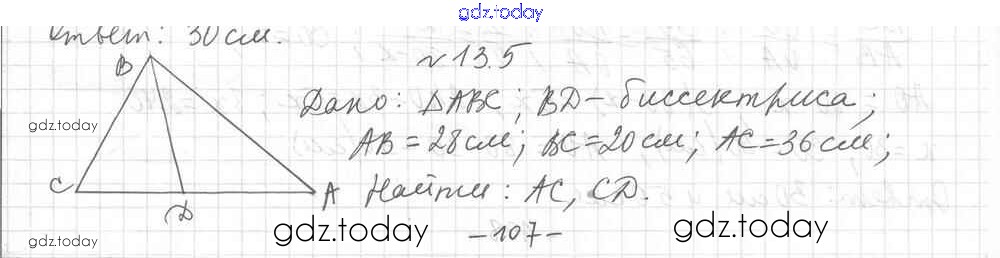 gdz.today
Ответ: 30 см.
N 13.5
B
Дано: △ABC; BD - биссектриса;
gdz.today
AB = 28 см; BC = 20 см; AC = 36 см;
C
D
A
Найти: AC, CD.
gdz.today
gdz.today
- 107 -
gdz.today